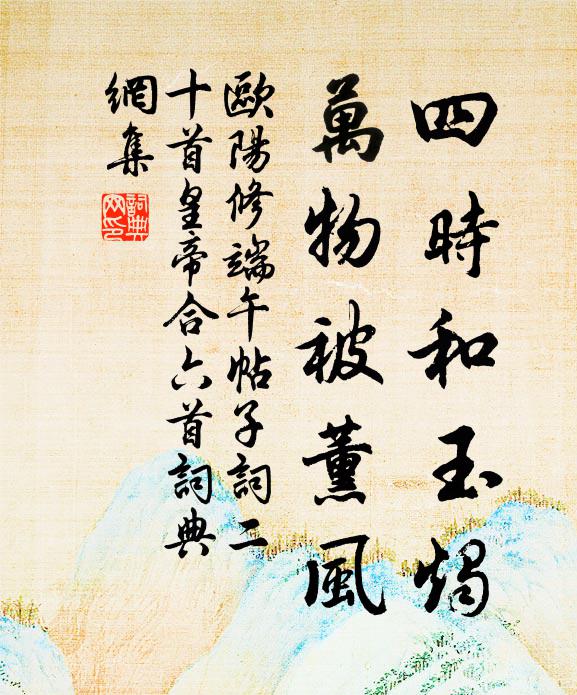 四時和玉燭
萬物被薰風
歐陽修端午帖子詞二
十首皇帝合六首詞典
網集
詞典網印